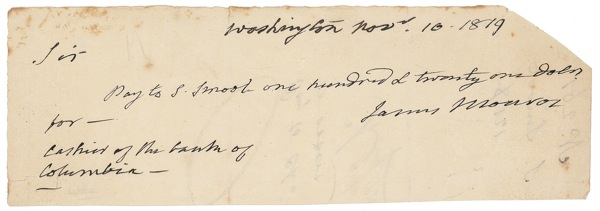 Washington Novr. 10. 1819
Sir
Pay to S. Smoot one hundred & twenty one dolrs.
for —
James Monroe
Cashier of the bank of
Columbia —